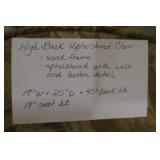 High Back Upholstered Chair
- wood frame
- upholstered with welt
and button detail
19" W x 25" D x 45" back ht
19" seat ht